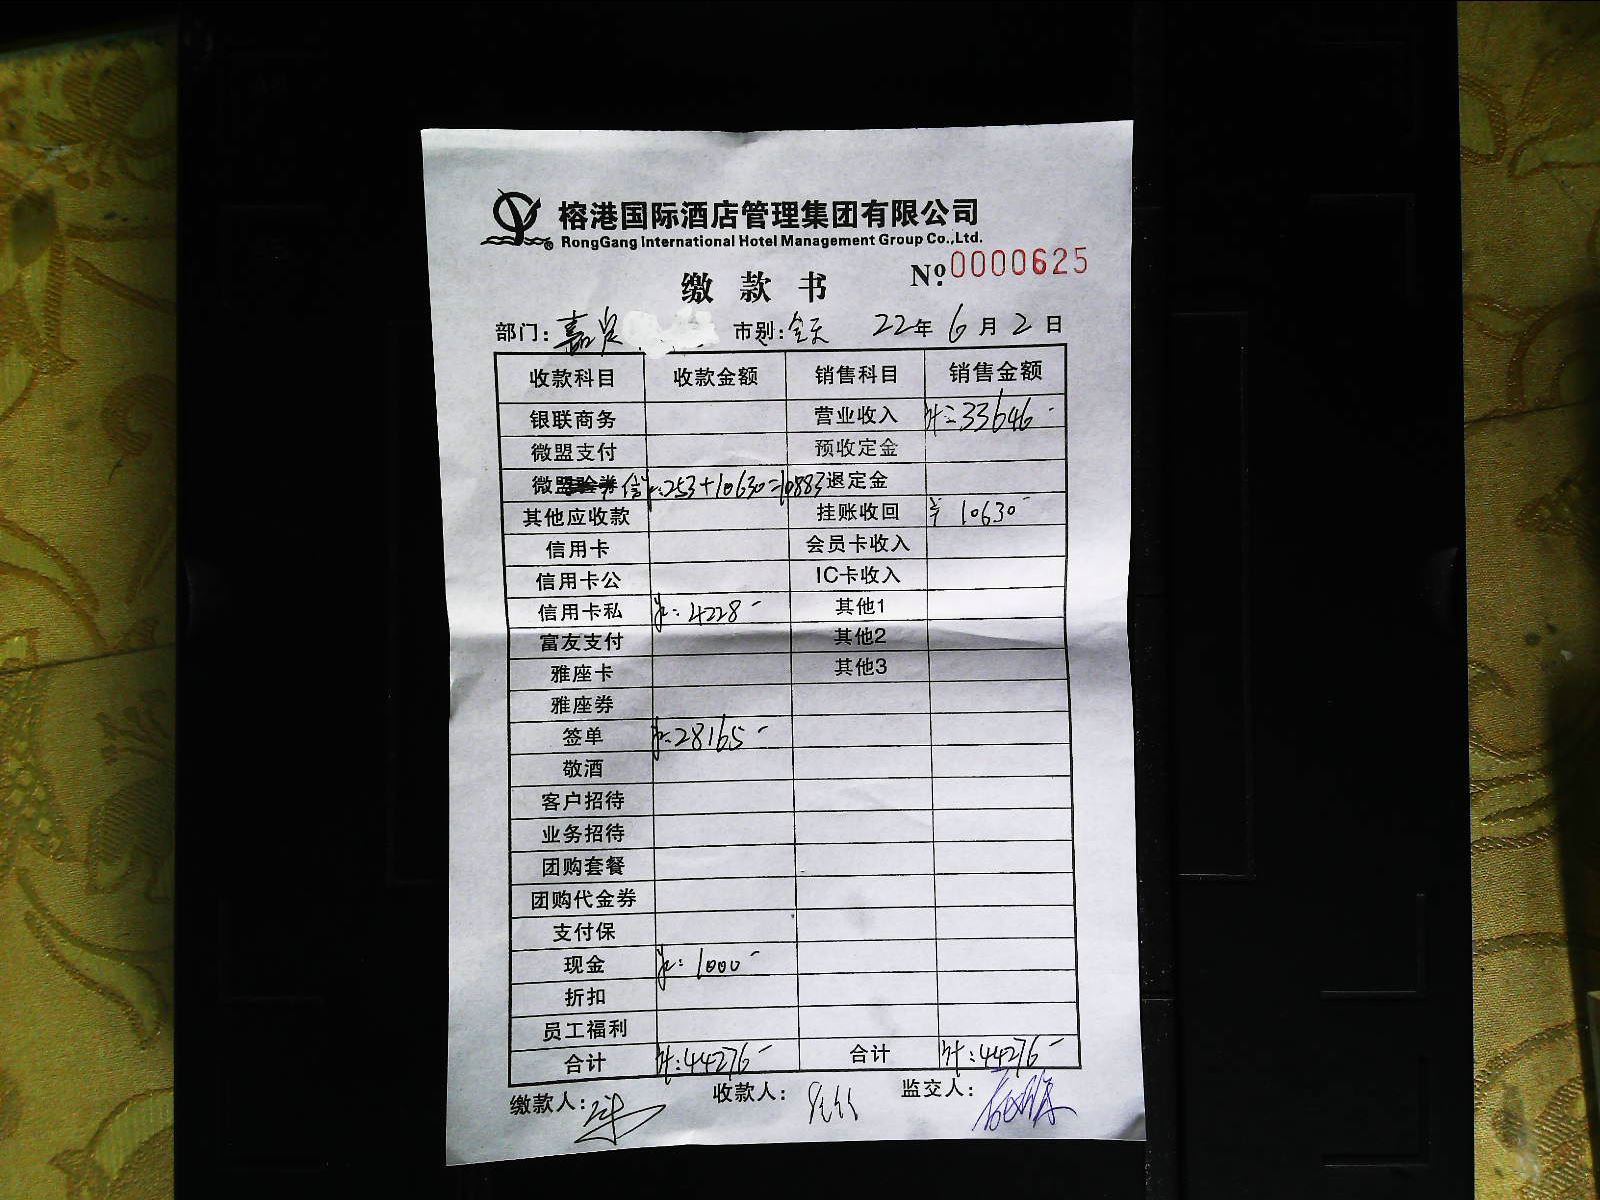 榕港国际酒店管理集团有限公司
RongGang International Hotel Management Group Co.,Ltd.
缴款书 Nº.0000625
部门:嘉定 市别:全天 22年6月2日
收款科目 收款金额 销售科目 销售金额
银联商务 营业收入 计:33646-
微盟支付 预收定金
微 信 ¥:253+10630=10883 退定金
其他应收款 挂账收回 ¥ 10630-
信用卡 会员卡收入
信用卡公 IC卡收入
信用卡私 ¥:4228- 其他1
富友支付 其他2
雅座卡 其他3
雅座券
签单 ¥:28165-
敬酒
客户招待
业务招待
团购套餐
团购代金券
支付保
现金 ¥:1000-
折扣
员工福利
合计 计:44276- 合计 计:44276-
缴款人: 收款人: 监交人: